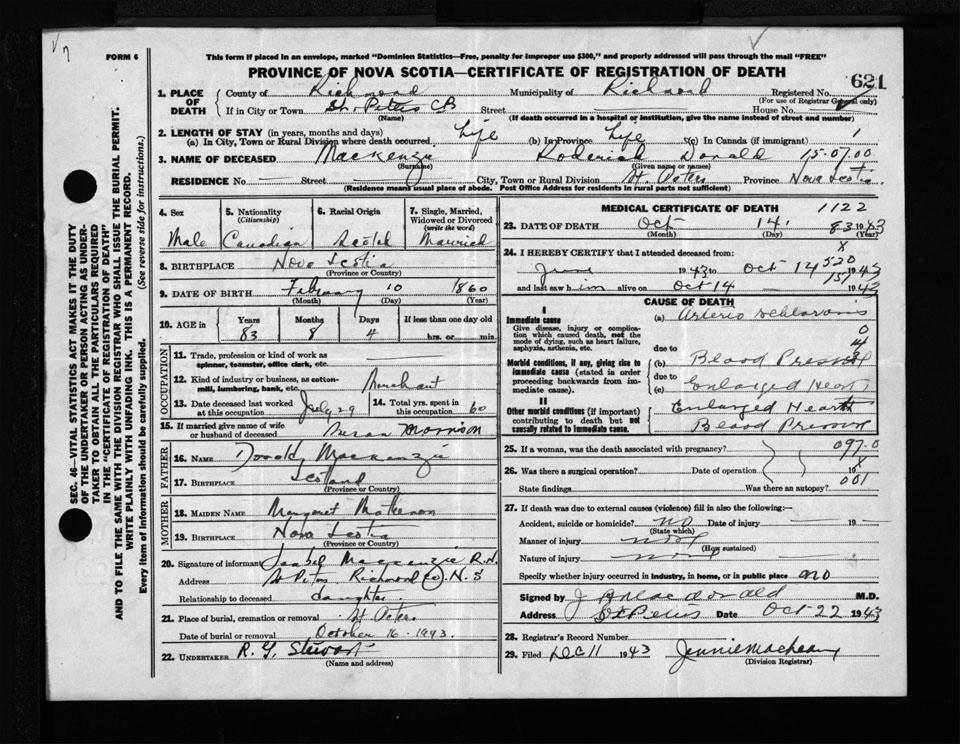 FORM 6
This form if placed in an envelope, marked "Dominion Statistics—Free, penalty for improper use $300," and properly addressed will pass through the mail "FREE"
PROVINCE OF NOVA SCOTIA—CERTIFICATE OF REGISTRATION OF DEATH
621
1. PLACE OF DEATH County of Richmond Municipality of Richmond Registered No.
(For use of Registrar General only)
If in City or Town St. Peters CB Street House No.
(Name) (If death occurred in a hospital or institution, give the name instead of street and number)
2. LENGTH OF STAY (in years, months and days)
(a) In City, Town or Rural Division where death occurred Life (b) In Province Life (c) In Canada (if immigrant)
3. NAME OF DECEASED MacKenzie Roderick Donald 15.07.00
(Surname) (Given name or names)
RESIDENCE No. Street City, Town or Rural Division St. Peters Province Nova Scotia
(Residence means usual place of abode. Post Office Address for residents in rural parts not sufficient)
4. Sex 5. Nationality (Citizenship) 6. Racial Origin 7. Single, Married, Widowed or Divorced (write the word)
Male Canadian Scotch Married
8. BIRTHPLACE Nova Scotia
(Province or Country)
9. DATE OF BIRTH February 10 1860
(Month) (Day) (Year)
10. AGE in Years Months Days If less than one day old
83 8 4 hrs. or min.
OCCUPATION
11. Trade, profession or kind of work as spinner, teamster, office clerk, etc.
12. Kind of industry or business, as cotton-mill, lumbering, bank, etc. Merchant
13. Date deceased last worked at this occupation July 29 14. Total yrs. spent in this occupation 60
15. If married give name of wife or husband of deceased Susan Morrison
FATHER
16. NAME Donald Mackenzie
17. BIRTHPLACE Scotland
(Province or Country)
MOTHER
18. MAIDEN NAME Margaret
19. BIRTHPLACE Nova Scotia
(Province or Country)
20. Signature of informant Isabel Mackenzie R.N.
Address St Peters Richmond Co. N.S
Relationship to deceased daughter
21. Place of burial, cremation or removal St Peters
Date of burial or removal October 16 1943.
22. UNDERTAKER R. Y. Stewart
(Name and address)
MEDICAL CERTIFICATE OF DEATH 1122
23. DATE OF DEATH Oct 14, 1943
83
(Month) (Day) (Year)
24. I HEREBY CERTIFY that I attended deceased from:
June 1943 to Oct 14 1943
520
and last saw him alive on Oct 14 1943
151
CAUSE OF DEATH
I
Immediate cause
Give disease, injury or complication which caused death, not the mode of dying, such as heart failure, asphyxia, asthenia, etc.
(a) Arterio Schlarosis
due to
Morbid conditions, if any, giving rise to immediate cause (stated in order proceeding backwards from immediate cause).
(b) Blood Pressure
due to
(c) Enlarged Heart
II
Other morbid conditions (if important) contributing to death but not causally related to immediate cause.
Enlarged Heart
Blood Pressure
25. If a woman, was the death associated with pregnancy? 097.0
26. Was there a surgical operation? Date of operation 19
State findings Was there an autopsy? 001
27. If death was due to external causes (violence) fill in also the following:—
Accident, suicide or homicide? no Date of injury 19
(State which)
Manner of injury
(How sustained)
Nature of injury
Specify whether injury occurred in industry, in home, or in public place no
Signed by M.D.
Address St Peters Date Oct 22 1943
28. Registrar's Record Number
29. Filed Dec 11 1943 Jennie
(Division Registrar)
SEC. 46—VITAL STATISTICS ACT MAKES IT THE DUTY
OF THE UNDERTAKER OR PERSON ACTING AS UNDER-
TAKER TO OBTAIN ALL THE PARTICULARS REQUIRED
IN THE "CERTIFICATE OF REGISTRATION OF DEATH"
AND TO FILE THE SAME WITH THE DIVISION REGISTRAR WHO SHALL ISSUE THE BURIAL PERMIT.
WRITE PLAINLY WITH UNFADING INK. THIS IS A PERMANENT RECORD.
Every item of Information should be carefully supplied. (See reverse side for instructions.)